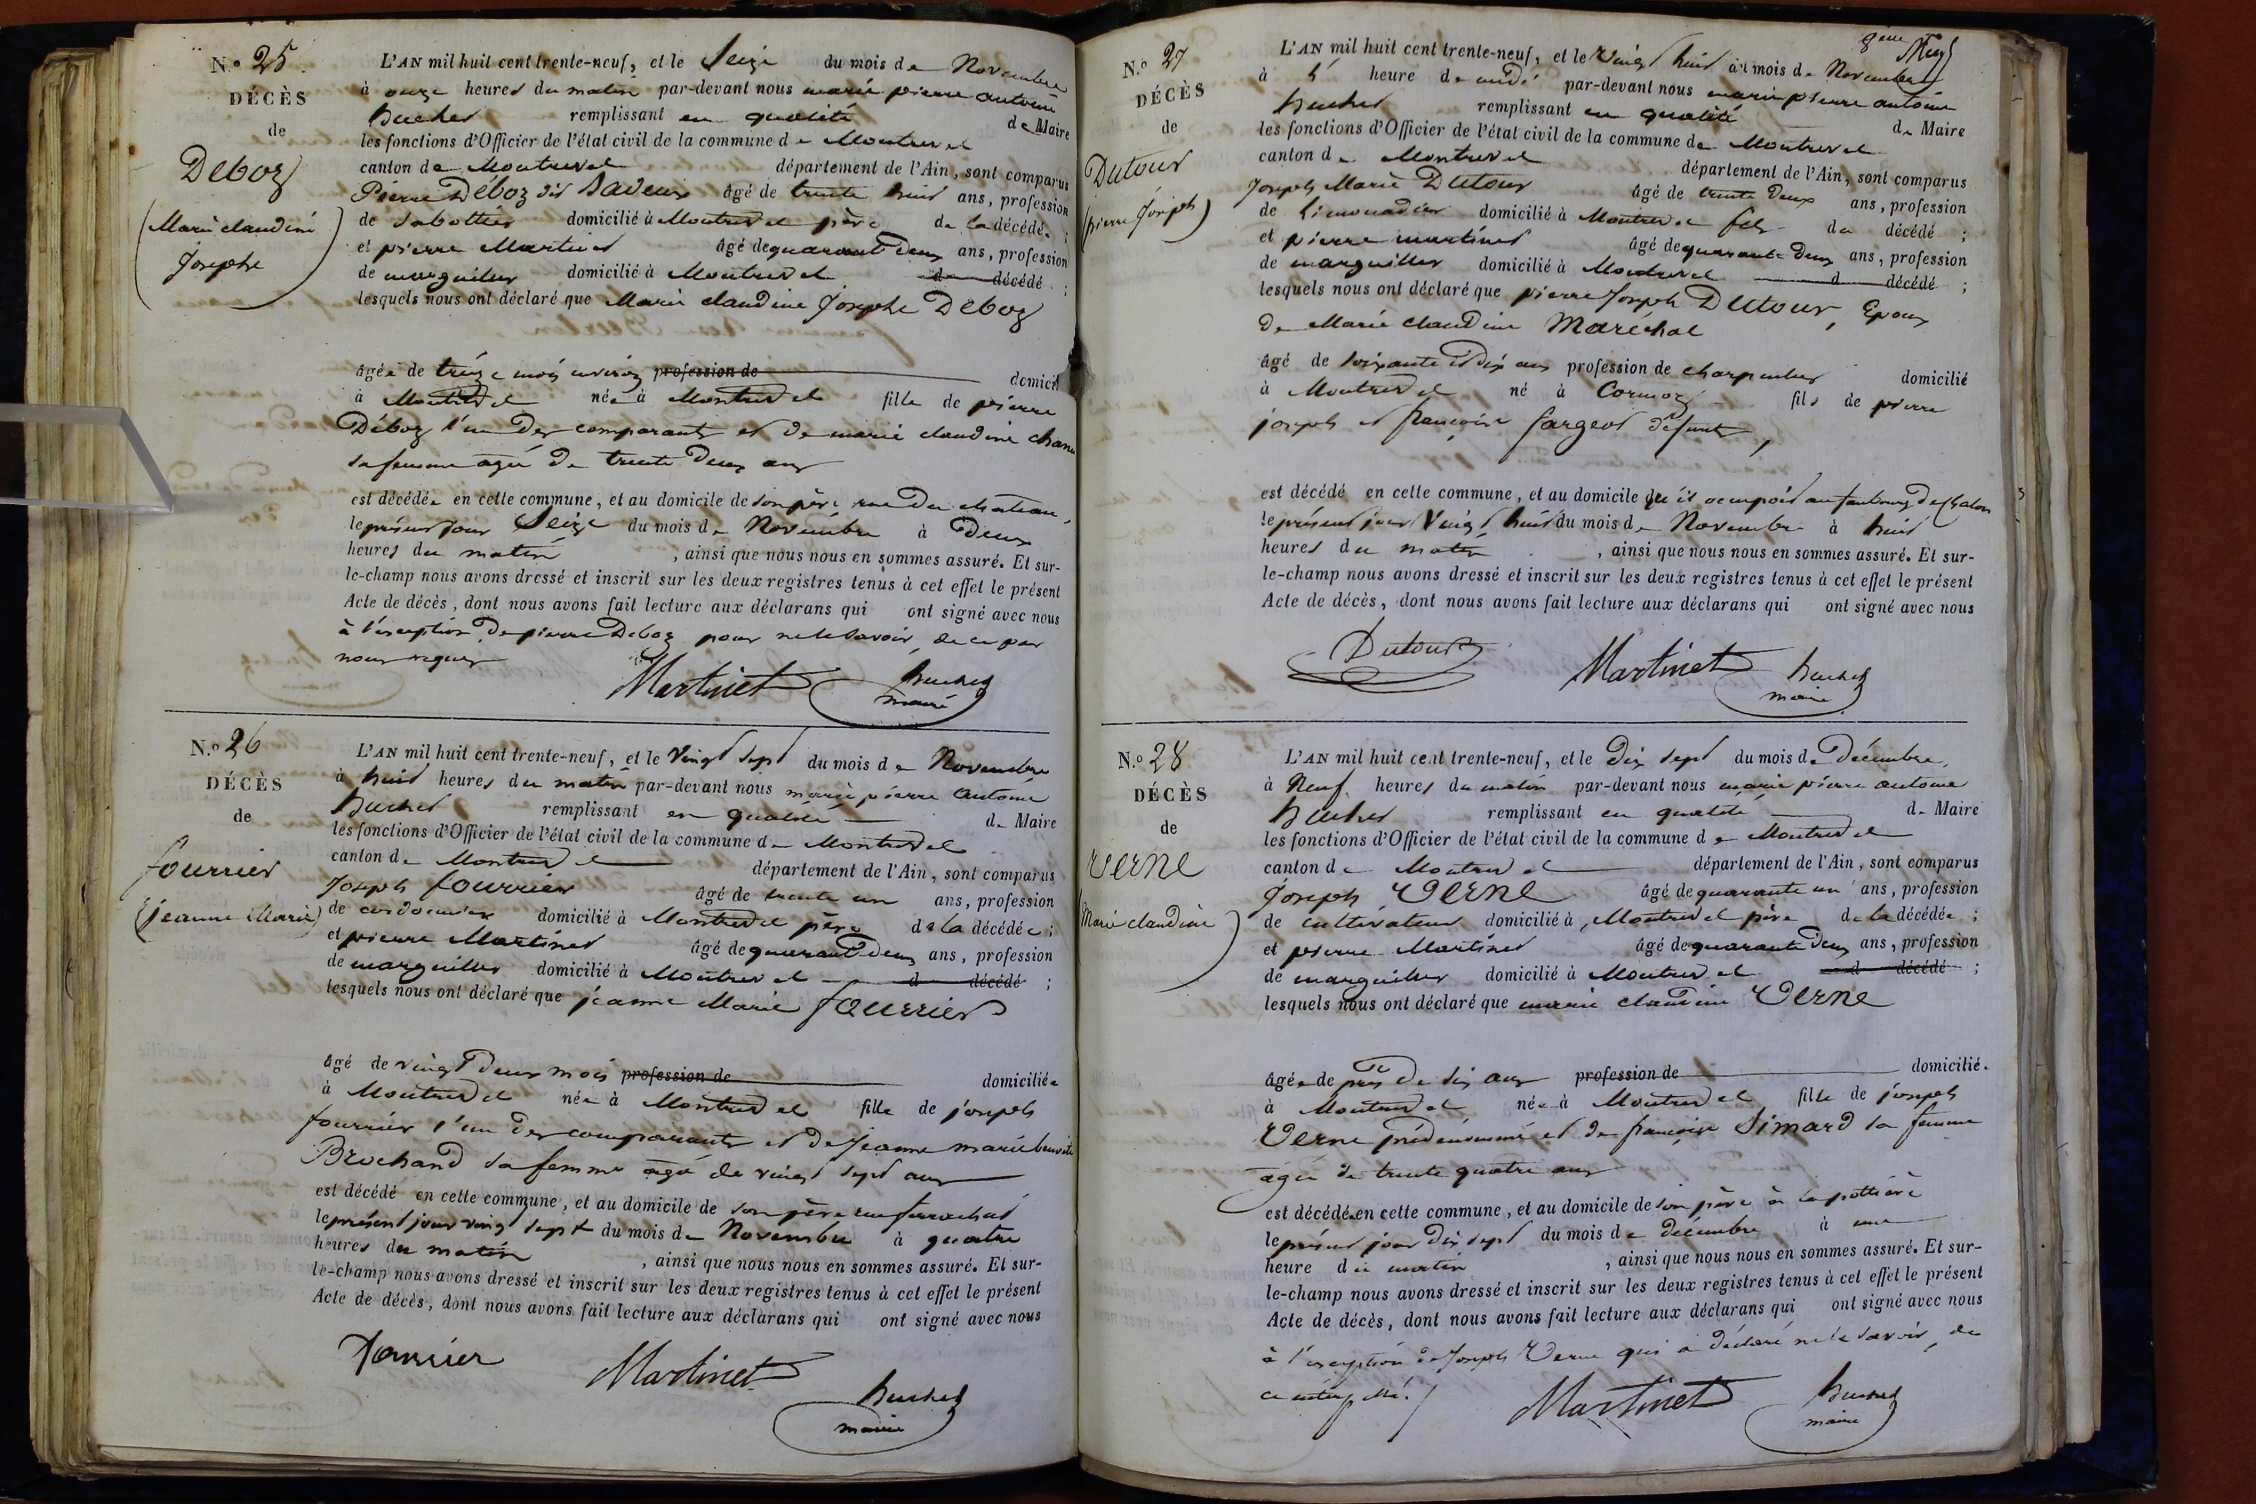 N.° 25
DÉCÈS
de
Deboz
(Marie claudine
Josephe)
L'AN mil huit cent trente-neuf, et le Seize du mois de Novembre
à onze heures du matin par-devant nous marie pierre antoine
huchet remplissant en qualité de Maire
les fonctions d'Officier de l'état civil de la commune de Montrevel
canton de Montrevel département de l'Ain, sont comparus
Pierre Déboz dit Badeux âgé de trente huit ans, profession
de Sabottier domicilié à Montrevel père de la décédée ;
et pierre Martinet âgé de quarant deux ans, profession
de marguiller domicilié à Montrevel d décédé ;
lesquels nous ont déclaré que Marie claudine Josephe Deboz
âgée de treize mois environ profession de domicil
à Montrevel née à Montrevel fille de pierre
Déboz l'un des comparants et de marie claudine
sa femme agée de trente deux ans
est décédée en cette commune, et au domicile de son père rue du chateau,
le présent jour Seize du mois de Novembre à Deux
heures du matin, ainsi que nous nous en sommes assuré. Et sur-
le-champ nous avons dressé et inscrit sur les deux registres tenus à cet effet le présent
Acte de décès, dont nous avons fait lecture aux déclarans qui ont signé avec nous
à l'exception de pierre Deboz pour ne le savoir, de ce par
nous requis
Martinet huchet
maire
N.° 26
DÉCÈS
de
fourrier
(jeanne Marie)
L'AN mil huit cent trente-neuf, et le Vingt Sept du mois de Novembre
à huit heures du matin par-devant nous marie pierre antoine
huchet remplissant en qualité de Maire
les fonctions d'Officier de l'état civil de la commune de Montrevel
canton de Montrevel département de l'Ain, sont comparus
Joseph fourrier âgé de trente un ans, profession
de cordonnier domicilié à Montrevel père de la décédée ;
et pierre Martinet âgé de quarant deux ans, profession
de marguiller domicilié à Montrevel d décédé ;
lesquels nous ont déclaré que jeanne Marie fourrier
âgé de vingt deux mois profession de domiciliée
à Montrevel née à Montrevel fille de joseph
fourrier l'un des comparants et de Jeanne marie benoite
Brochand sa femme agée de vingt sept ans
est décédé en cette commune, et au domicile de son père rue ferrachat
le présent jour vingt sept du mois de Novembre à quatre
heures du matin, ainsi que nous nous en sommes assuré. Et sur-
le-champ nous avons dressé et inscrit sur les deux registres tenus à cet effet le présent
Acte de décès, dont nous avons fait lecture aux déclarans qui ont signé avec nous
fourrier Martinet huchet
maire
N.° 27
DÉCÈS
de
Dutour
(pierre Joseph)
L'AN mil huit cent trente-neuf, et le Vingt huit du mois de Novembre
à heure de midi par-devant nous marie pierre antoine
huchet remplissant en qualité de Maire
les fonctions d'Officier de l'état civil de la commune de Montrevel
canton de Montrevel département de l'Ain, sont comparus
Joseph Marie Dutour âgé de trente deux ans, profession
de Limonadier domicilié à Montrevel fils du décédé ;
et pierre martinet âgé de quarante deux ans, profession
de marguiller domicilié à Montrevel d décédé ;
lesquels nous ont déclaré que pierre Joseph Dutour, Epoux
de Marie claudine Maréchal
âgé de soixante et dix ans profession de charpentier domicilié
à Montrevel né à Cormoz fils de pierre
joseph et françoise fargeot défunts,
est décédé en cette commune, et au domicile qu'il occupoit au faubourg de Chalon
le présent jour Vingt huit du mois de Novembre à huit
heures du matin, ainsi que nous nous en sommes assuré. Et sur-
le-champ nous avons dressé et inscrit sur les deux registres tenus à cet effet le présent
Acte de décès, dont nous avons fait lecture aux déclarans qui ont signé avec nous
Dutour Martinet huchet
maire
N.° 28
DÉCÈS
de
Verne
(Marie claudine)
L'AN mil huit cent trente-neuf, et le Dix Sept du mois de Décembre,
à Neuf heures du matin par-devant nous marie pierre antoine
huchet remplissant en qualité de Maire
les fonctions d'Officier de l'état civil de la commune de Montrevel
canton de Montrevel département de l'Ain, sont comparus
Joseph Verne âgé de quarante un ans, profession
de cultivateur domicilié à Montrevel père de la décédée ;
et pierre Martinet âgé de quarante deux ans, profession
de marguiller domicilié à Montrevel d décédé ;
lesquels nous ont déclaré que marie claudine Verne
âgée de près de six ans profession de domicilié
à Montrevel née à Montrevel fille de joseph
Verne prédénommé et de françoise Simard sa femme
agée de trente quatre ans
est décédée en cette commune, et au domicile de son père à la pottière
le présent jour dix sept du mois de décembre à une
heure du matin, ainsi que nous nous en sommes assuré. Et sur-
le-champ nous avons dressé et inscrit sur les deux registres tenus à cet effet le présent
Acte de décès, dont nous avons fait lecture aux déclarans qui ont signé avec nous
à l'exception de Joseph Verne qui a déclaré ne le savoir, de
ce interpellé.
Martinet huchet
maire